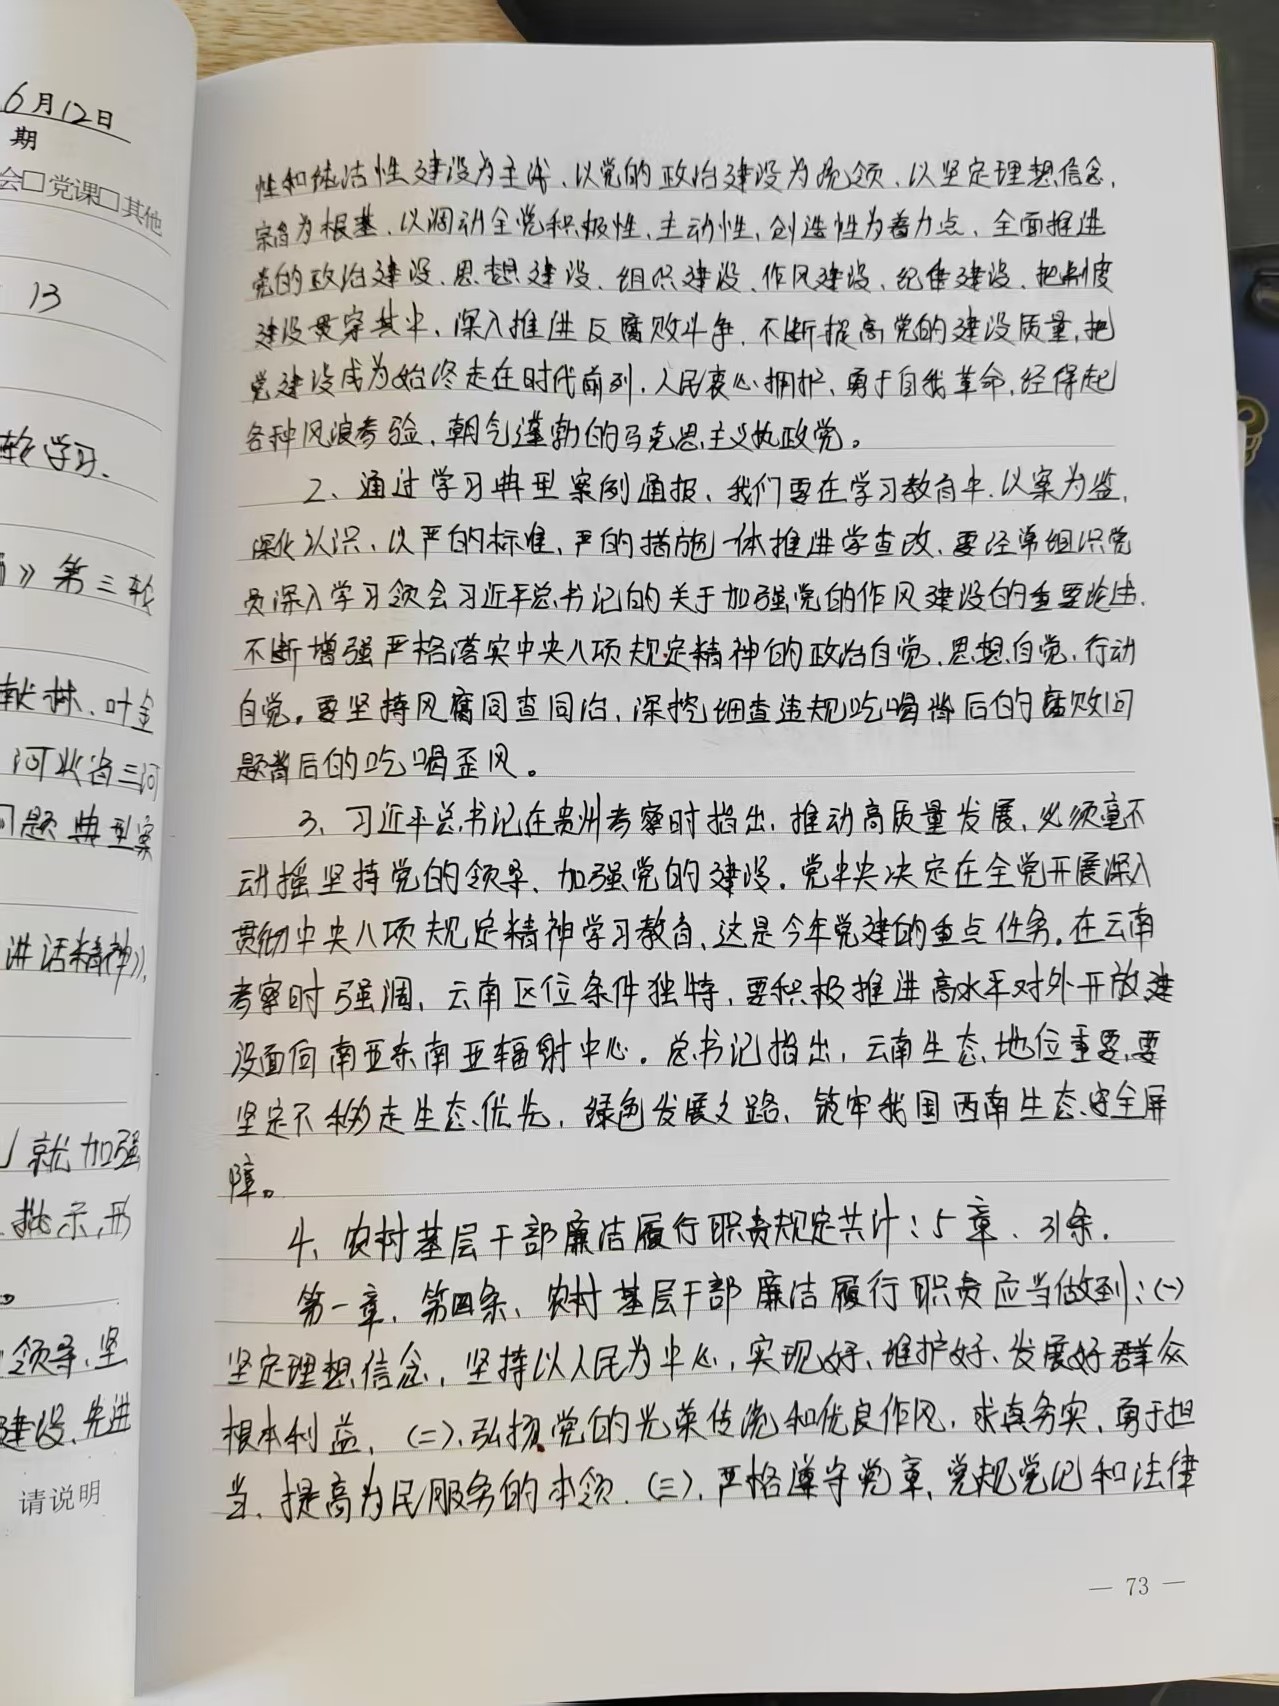 6月12日
期
会□党课□其他
13
轮学习、
》第三轮
献林、叶金
河北省三河
问题典型案
讲话精神》,
就加强
批示,形
领导、坚
建设、先进
请说明
性和纯洁性建设为主线、以党的政治建设为统领、以坚定理想信念,
宗旨为根基、以调动全党积极性、主动性、创造性为着力点、全面推进
党的政治建设、思想建设、组织建设、作风建设、纪律建设、把制度
建设贯穿其中、深入推进反腐败斗争、不断提高党的建设质量,把
党建设成为始终走在时代前列,人民衷心拥护、勇于自我革命,经得起
各种风浪考验、朝气蓬勃的马克思主义执政党。
2、通过学习典型案例通报、我们要在学习教育中、以案为鉴,
深化认识、以严的标准、严的措施一体推进学查改、要经常组织党
员深入学习领会习近平总书记的关于加强党的作风建设的重要论述.
不断增强严格落实中央八项规定精神的政治自觉、思想自觉、行动
自觉。要坚持风腐同查同治、深挖细查违规吃喝背后的腐败问
题背后的吃喝歪风。
3、习近平总书记在贵州考察时指出,推动高质量发展、必须毫不
动摇坚持党的领导、加强党的建设。党中央决定在全党开展深入
贯彻中央八项规定精神学习教育、这是今年党建的重点任务。在云南
考察时强调、云南区位条件独特,要积极推进高水平对外开放,建
设面向南亚东南亚辐射中心。总书记指出,云南生态地位重要,要
坚定不移走生态优先,绿色发展之路、筑牢我国西南生态安全屏
障。
4、农村基层干部廉洁履行职责规定共计:5章、31条.
第一章、第四条、农村基层干部廉洁履行职责应当做到:(一)
坚定理想信念,坚持以人民为中心,实现好、维护好、发展好群众
根本利益,(二)、弘扬党的光荣传统和优良作风,求真务实、勇于担
当、提高为民服务的本领.(三),严格遵守党章、党规党纪和法律
— 73 —